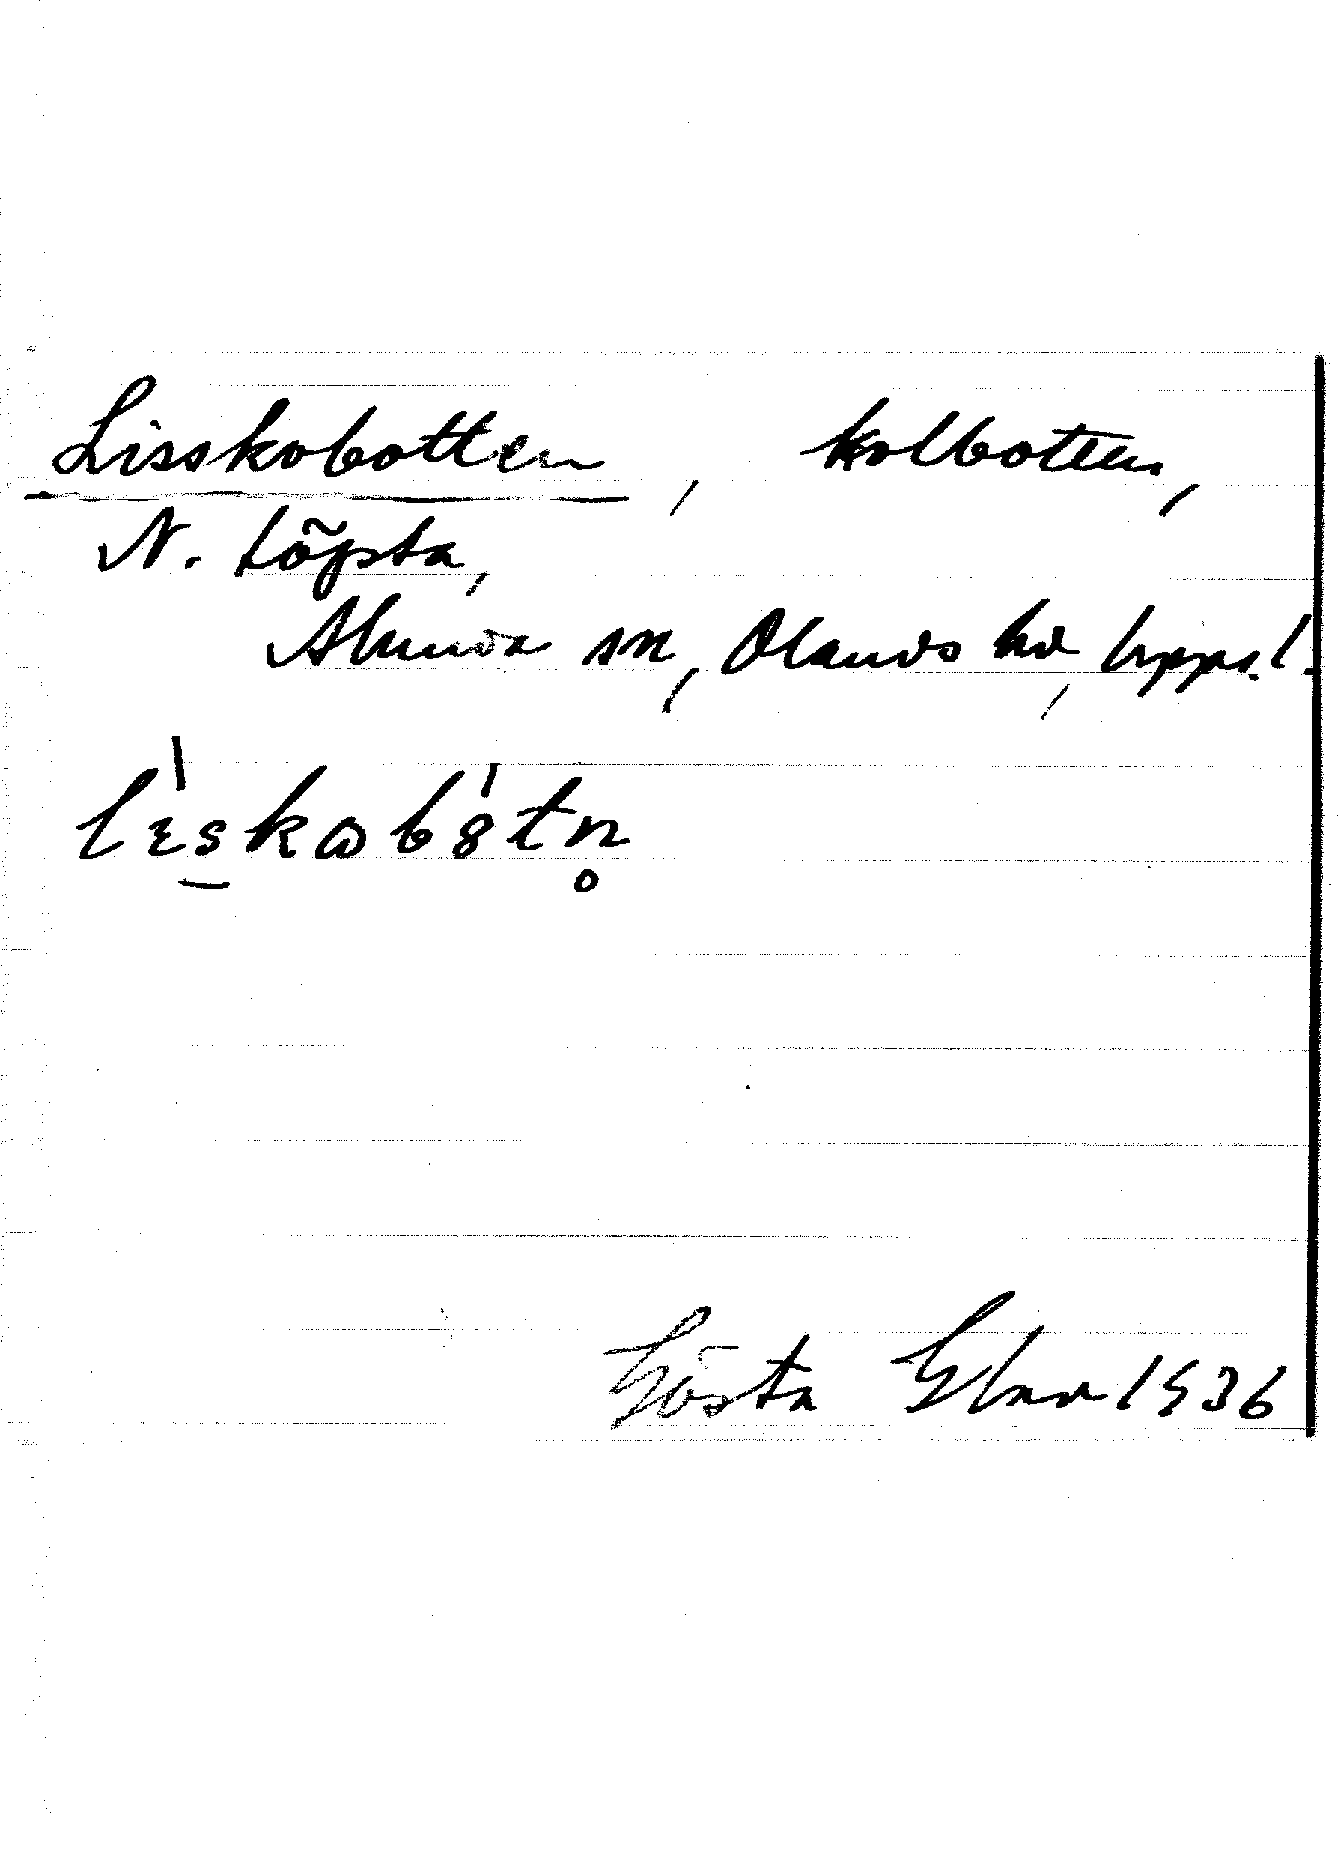 Lisskobotten, kolbotten,
N. Löpsta,
Alunda sn, Olands hd, Upps. l.
Gösta 1936